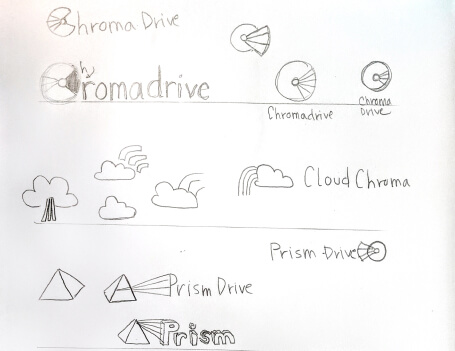 Chroma Drive
Chromadrive
Chromadrive
Chroma
Drive
Cloud Chroma
Prism Drive
Prism Drive
Prism